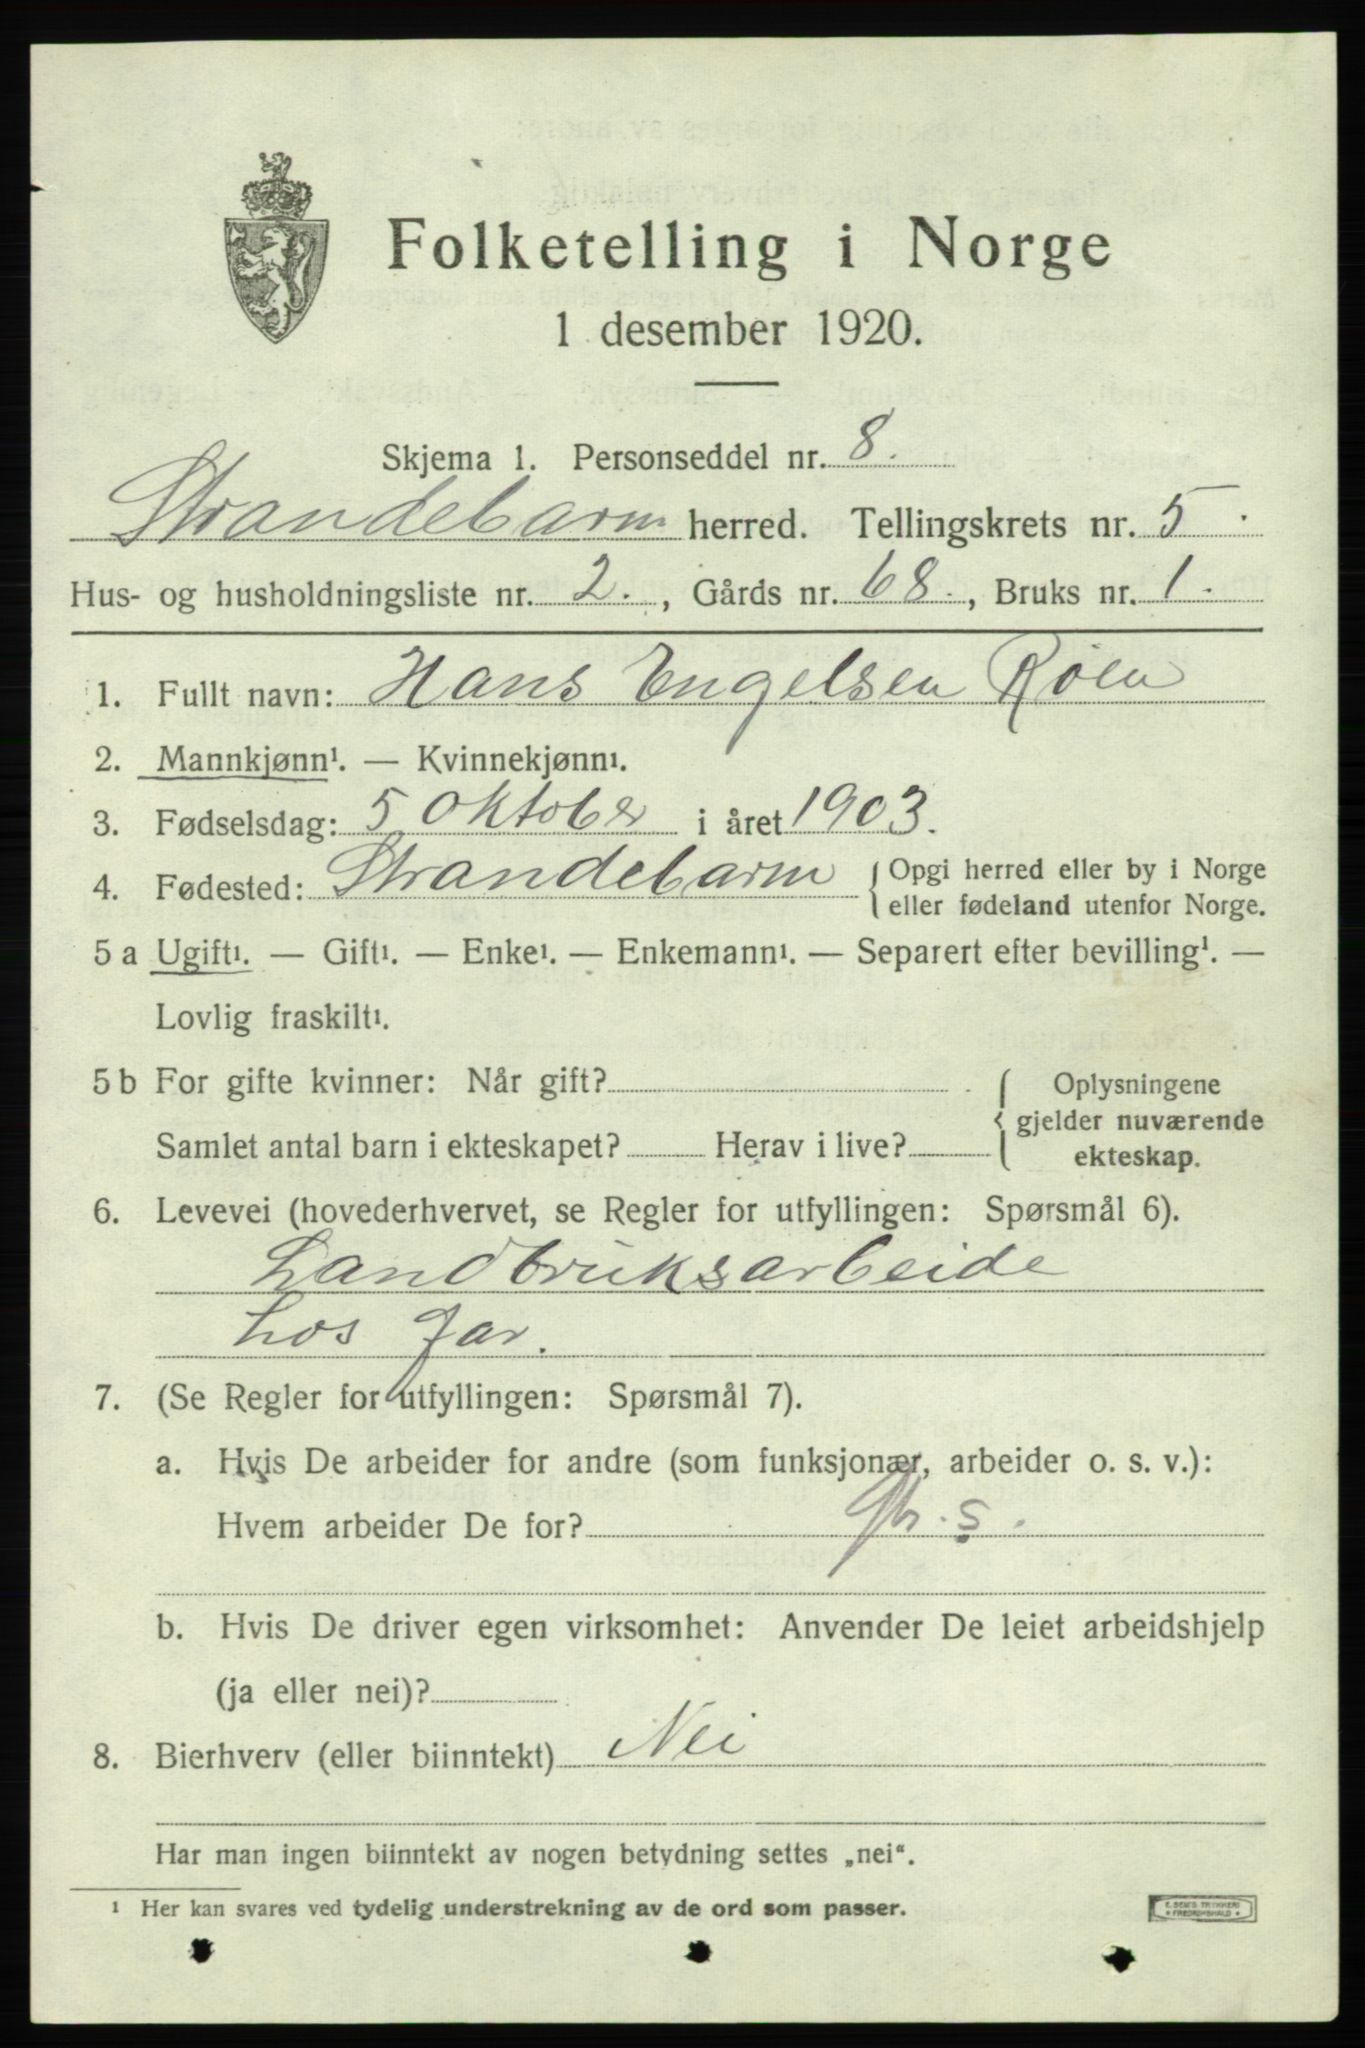 Folketelling i Norge
1 desember 1920.
Skjema 1. Personseddel nr. 8.
Strandebarm herred. Tellingskrets nr. 5.
Hus- og husholdningsliste nr. 2., Gårds nr. 68., Bruks nr. 1.
1. Fullt navn: Hans Engelsen Røen
2. Mannkjønn¹. — Kvinnekjønn¹.
3. Fødselsdag: 5 Oktober i året 1903.
4. Fødested: Strandebarm { Opgi herred eller by i Norge
eller fødeland utenfor Norge.
5 a Ugift¹. — Gift¹. — Enke¹. — Enkemann¹. — Separert efter bevilling¹. —
Lovlig fraskilt¹.
5 b For gifte kvinner: Når gift? { Oplysningene
gjelder nuværende
Samlet antal barn i ekteskapet? Herav i live?
ekteskap.
6. Levevei (hovederhvervet, se Regler for utfyllingen: Spørsmål 6).
Landbruksarbeide
hos far.
7. (Se Regler for utfyllingen: Spørsmål 7).
a. Hvis De arbeider for andre (som funksjonær, arbeider o. s. v.):
Hvem arbeider De for?
b. Hvis De driver egen virksomhet: Anvender De leiet arbeidshjelp
(ja eller nei)?
8. Bierhverv (eller biinntekt) Nei
Har man ingen biinntekt av nogen betydning settes „nei“.
¹ Her kan svares ved tydelig understrekning av de ord som passer.
E. SEM'S TRYKKERI
* FREDRIKSHALD *